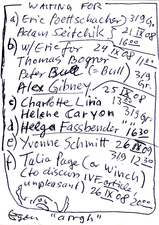 WAITING FOR
a) Eric Poettschacher 3/9 Gr.
Adam Seitchik 21 IX 08
b) w/Eric for 24 IX 08 1600
Thomas Bogner
Peter Bull (= Bull) 3/9 Gr.
Alex Gibney 25 IX 08
c) Charlotte Liria 1330
Helene Caryon 3/9 Gr.
d) Helga Fassbender " 1630
e) Yvonne Schmitt 26 IX 08
f) Talia Page (or Winch) 3/9 1230
(to discuss IVF article
26 IX 08 2000
"arrgh"